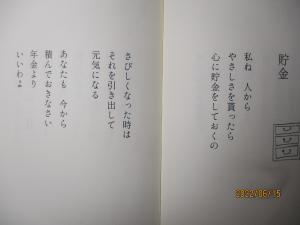 貯金
私ね 人から
やさしさを貰ったら
心に貯金をしておくの
さびしくなった時は
それを引き出して
元気になる
あなたも 今から
積んでおきなさい
年金より
いいわよ
2022/06/15